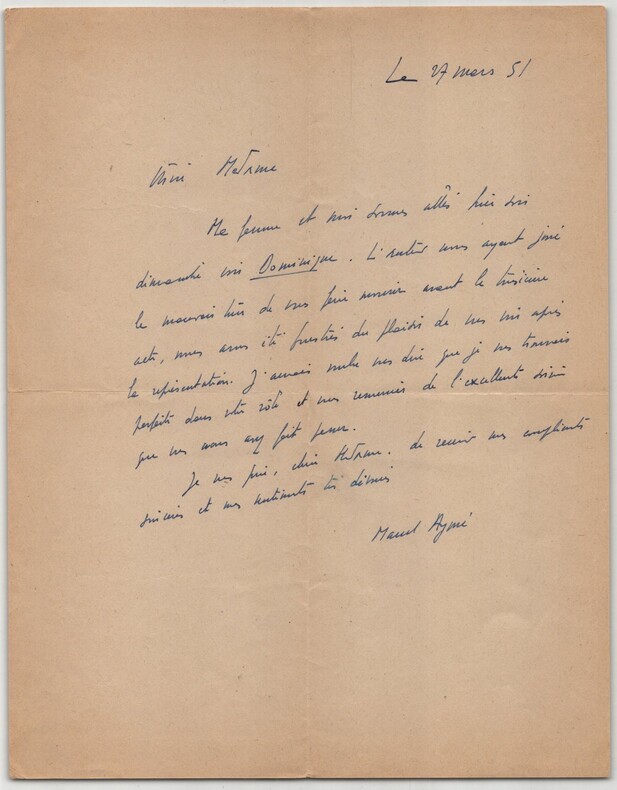 Le 27 mars 51
Chère Madame
Ma femme et moi sommes allés hier soir
dimanche voir Dominique. L'auteur vous ayant joué
le mauvais tour de vous faire mourir avant le troisième
acte, nous avons été frustrés du plaisir de vous voir après
la représentation. J'aurais voulu vous dire que je vous trouvais
parfaite dans votre rôle et vous remercier de l'excellente soirée
que vous nous avez fait passer.
Je vous prie, chère Madame, de recevoir mes compliments
sincères et mes sentiments très dévoués
Marcel Aymé